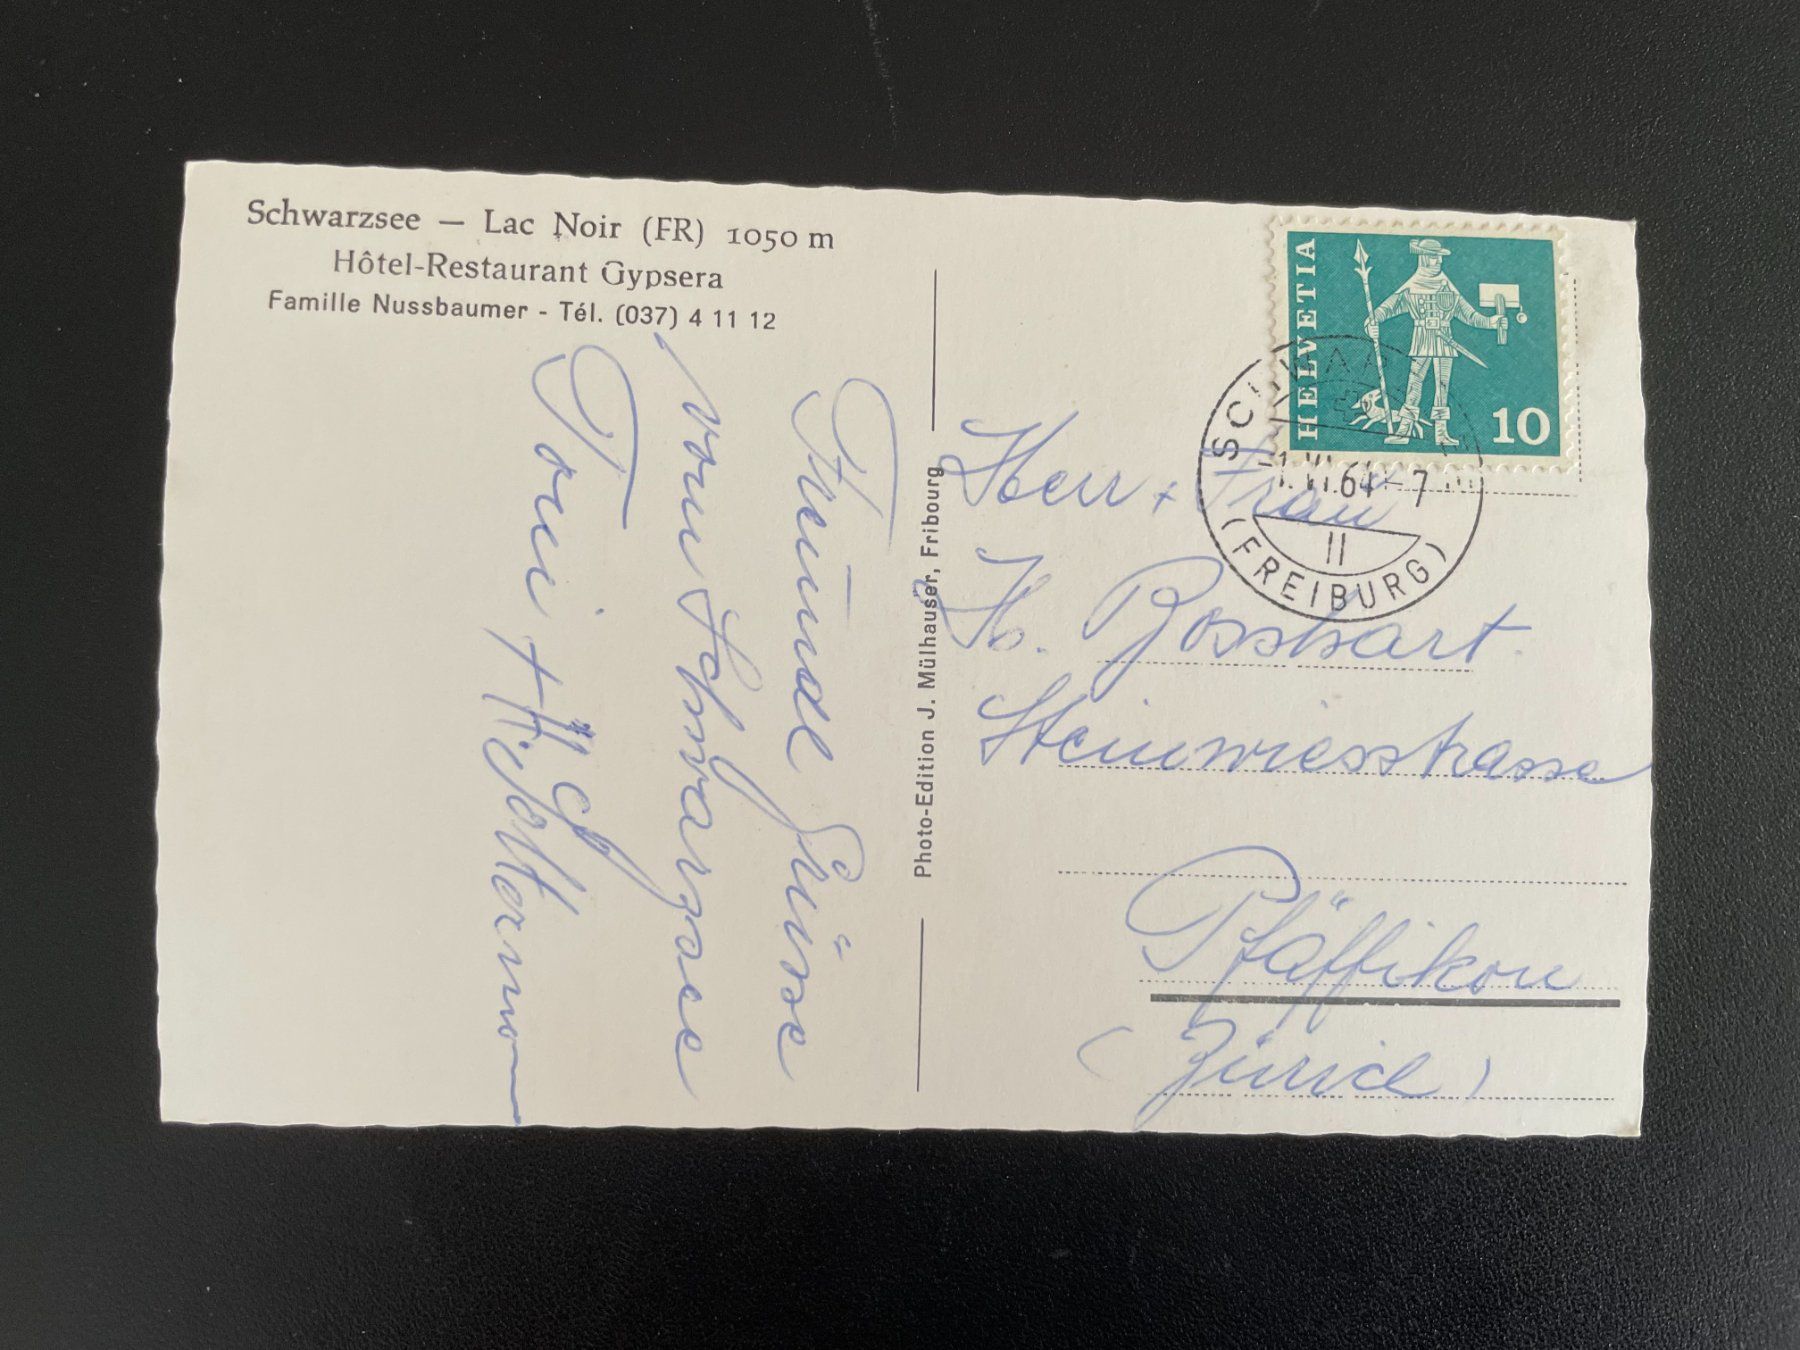 Schwarzsee — Lac Noir (FR) 1050 m
Hôtel-Restaurant Gypsera
Famille Nussbaumer - Tél. (037) 4 11 12
Freundl Grüsse
vom Schwarzsee
Toni +
Photo-Edition J. Mülhauser, Fribourg
HELVETIA
10
64-7
II
(FREIBURG)
Herr + Frau
H. Bosshart.
Steinwiesstrasse
Pfäffikon
(Zürich)